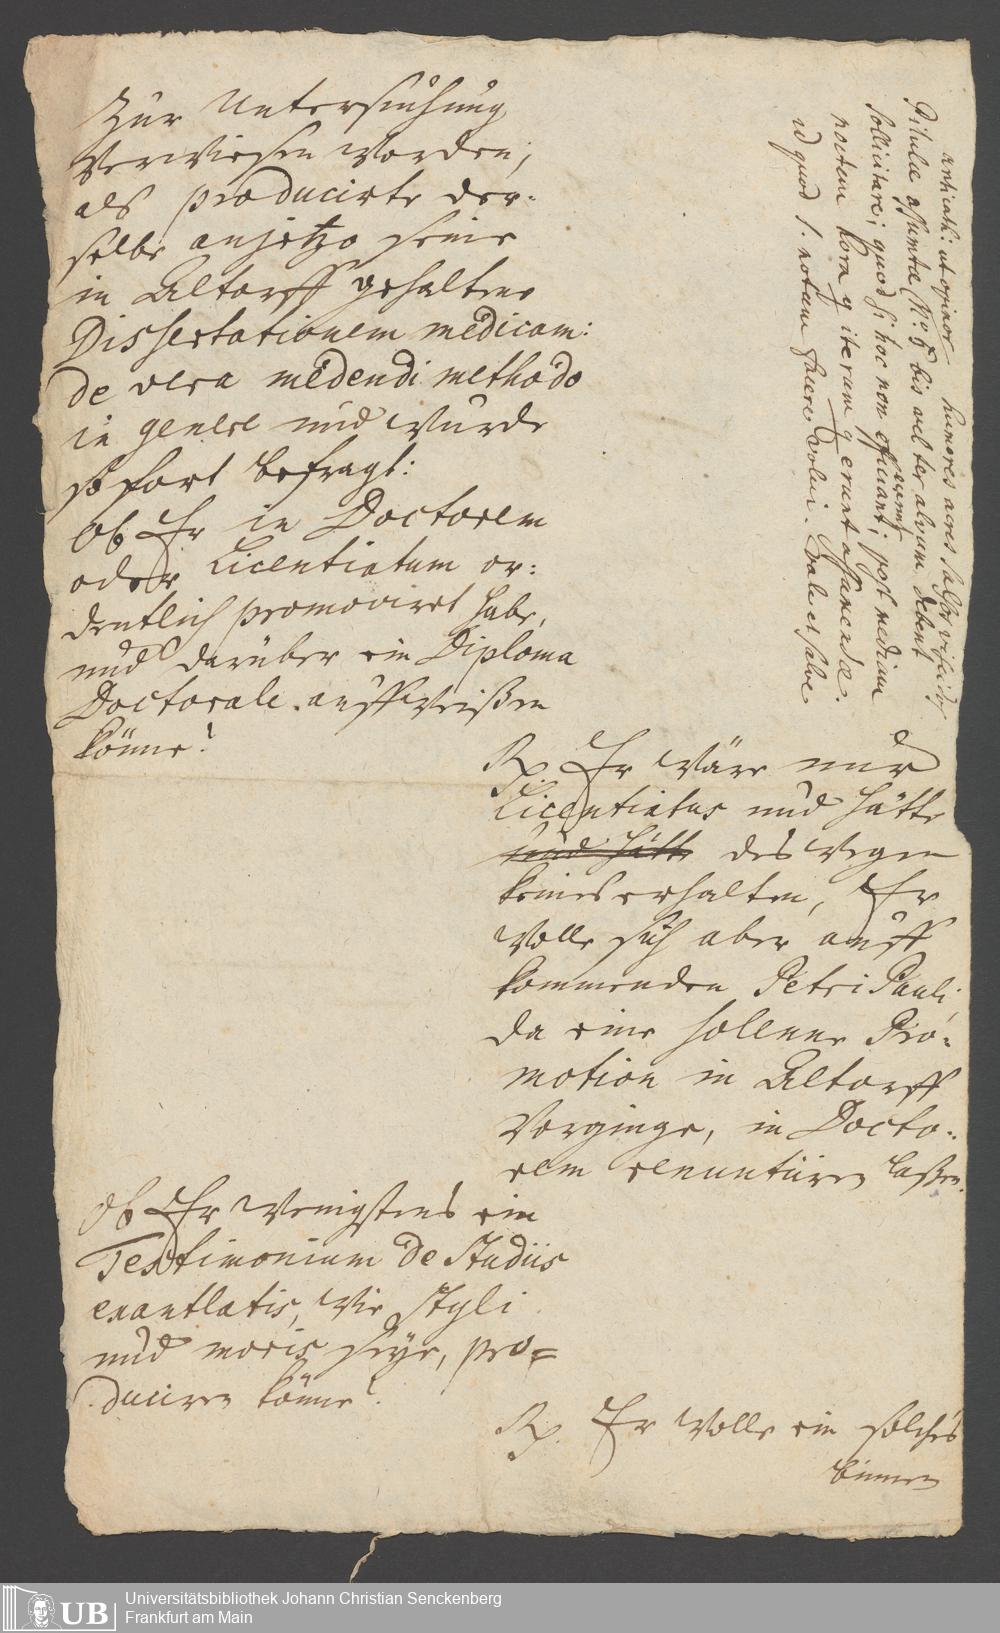 Zur Untersuchung
Verwiesen worden;
als producirte der=
selbe anjetzo seine
in Altorff gehaltene
Dissertationem medicam:
de vera medendi methodo
in genere und wurde
sofort befragt:
Ob Er in Doctorem
oder Licentiatum or:
dentlich promoviret habe,
und darüber ein Diploma
Doctorale auffweißen
könne?
Rp. Er wäre nur
Licentiatus und hätte
und hätte deswegen
keines erhalten, Er
wolle sich aber auff
kommenden Petri Pauli,
da eine sollenne Pro=
motion in Altorff
Vorginge, in Docto=
rem renuntiiren laßen.
Ob Er wenigstens ein
Testimonium de Studiis
exantlatis, wie styli
und moris seye, pro=
duciren könne?
Rp. Er wolle ein solches
binnen
anticath: ut opinor humores acres salsos viscidos
Pilulae assumtae bis vel ter alvum debent
sollicitare; quod si hoc non efficiunt, post mediam
erunt
noctem hora iterum erunt assumendae.
id quod notum facere volui. Vale et salve
Universitätsbibliothek Johann Christian Senckenberg
Frankfurt am Main
UB